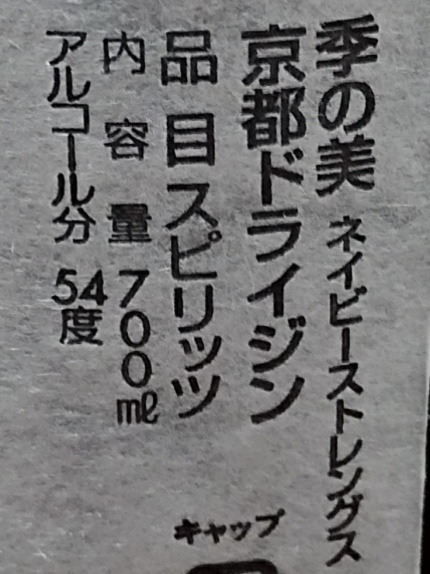 季の美 ネイビーストレングス
京都ドライジン
品目 スピリッツ
内容量 700ml
アルコール分 54度
キャップ